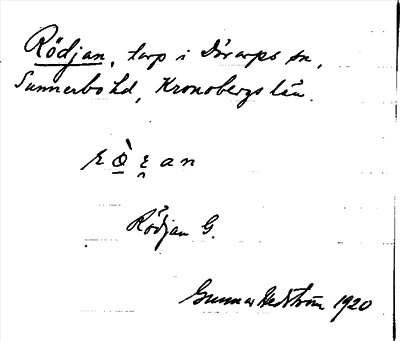 Rödjan, torp i Dörarps sn,
Sunnerbo hd, Kronobergs län.
an
Rödjan G.
Gunnar Hedström 1920